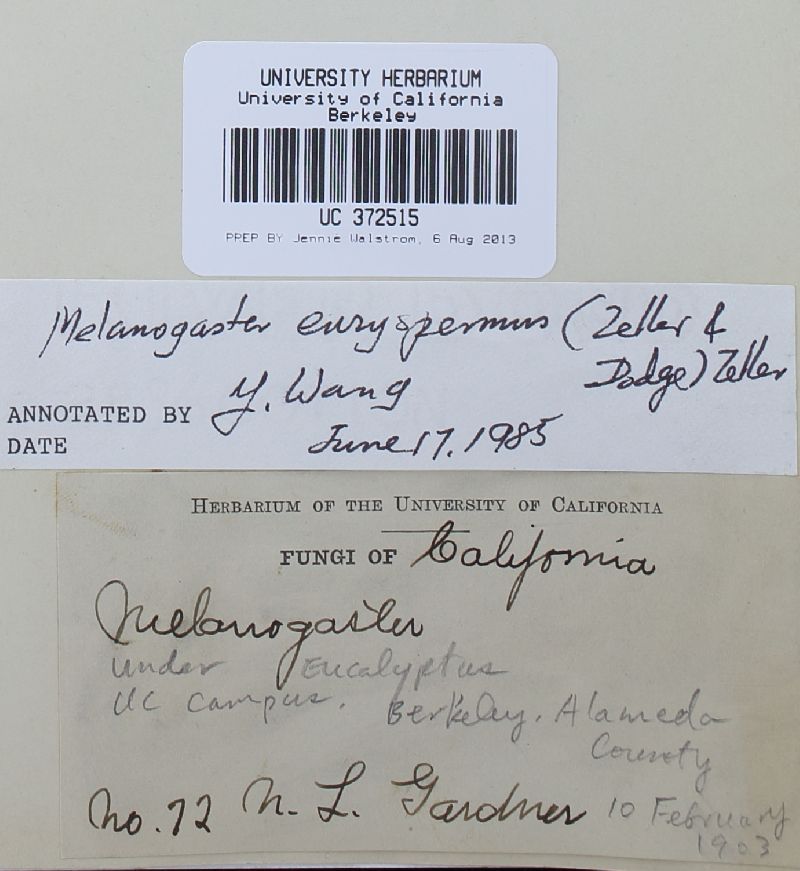 UNIVERSITY HERBARIUM
University of California
Berkeley
UC 372515
PREP BY Jennie Walstrom, 6 Aug 2013
Melanogaster euryspermus (Zeller &
Dodge) Zeller
ANNOTATED BY Y. Wang
DATE June 17, 1985
HERBARIUM OF THE UNIVERSITY OF CALIFORNIA
FUNGI OF California
Melanogaster
Under Eucalyptus
UC Campus. Berkeley. Alameda
County
No. 72 N. L. Gardner 10 February
1903